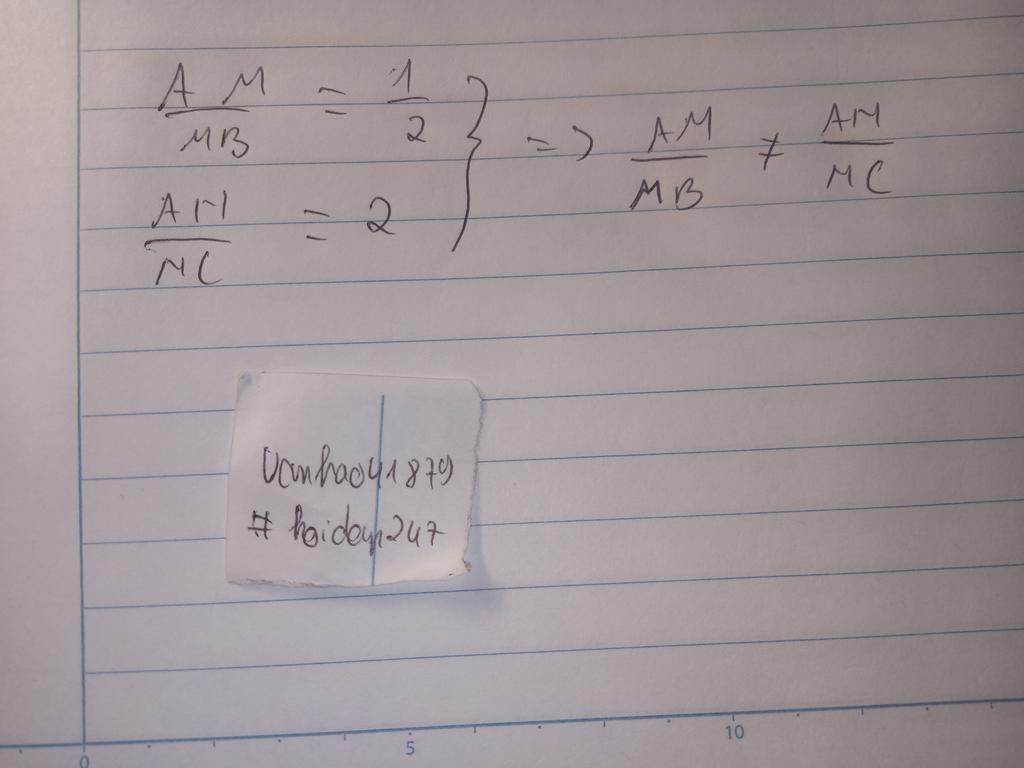 AM/MB = 1/2
AN/NC = 2
} => AM/MB ≠ AN/NC
vanhao41879
# hoidap247
0 5 10